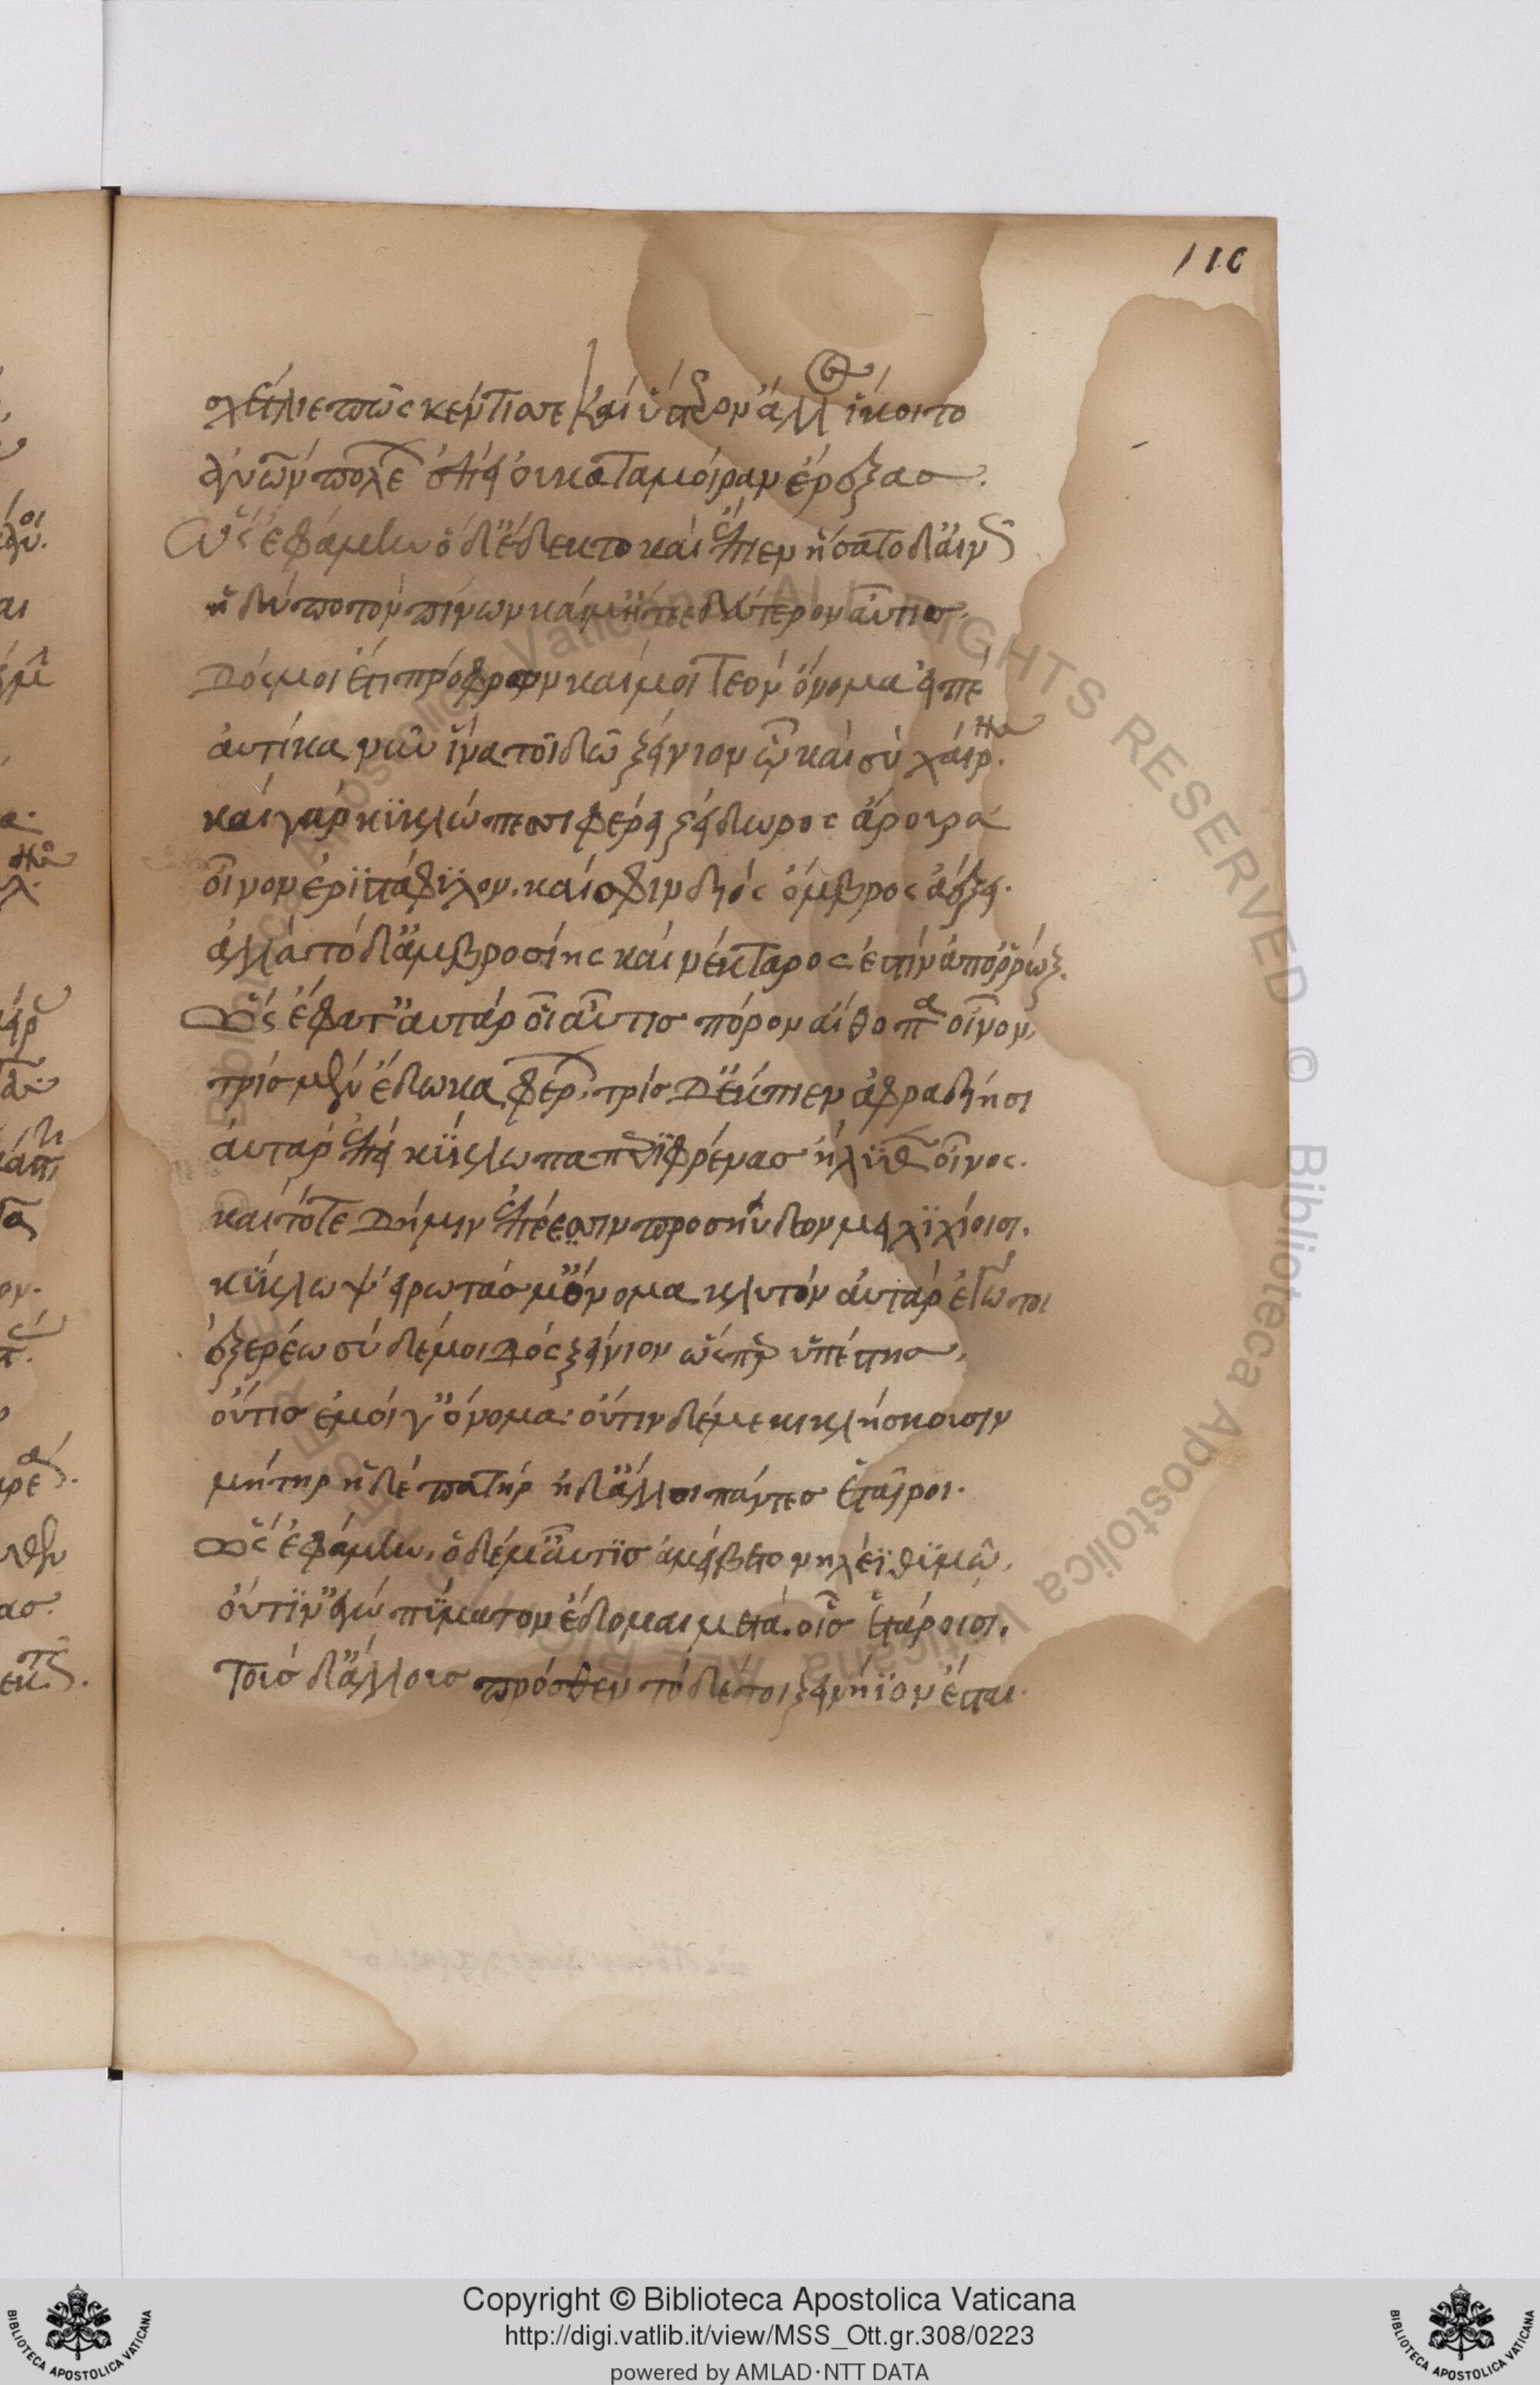 110
σχέτλιε πῶς κέν τίς σε καὶ ὕστερον ἄλλος ἵκοιτο
ἀνθρώπων πολέων ἐπεὶ οὐ κατὰ μοίραν ἔρεξας.
ὣς ἐφάμην ὁ δ' ἔδεκτο καὶ ἔκπιεν ἥσατο δ' αἰνῶς
ἡδὺ ποτὸν πίνων καί μ' ἤτεε δεύτερον αὖτις.
Δός μοι ἔτι πρόφρων καί μοι τεὸν ὄνομα εἰπὲ
αὐτίκα νῦν ἵνα τοι δῶ ξείνιον ὧ καὶ σὺ χαίρης.
καὶ γὰρ κϊκλώπεσσι φέρει ζείδωρος ἄρουρα
οἶνον ἐρϊστάφϋλον. καί σφιν διὸς ὄμβρος ἀέξει.
ἀλλὰ τόδ' ἀμβροσίης καὶ νέκταρος ἐστὶν ἀπορρώξ.
ὣς ἔφατ' αὐτάρ οἱ αὖτις πόρον αἴθοπα οἶνον,
τρὶς μὲν ἔδωκα φέρων. τρὶς Δ' ἔκπιεν ἀφραδίησι
αὐτὰρ ἐπεὶ κϊκλωπα περὶ φρένας ἤλϋθεν οἶνος.
καὶ τότε Δή μιν ἐπέεσσιν προσηύδων μειλϊχίοισι.
κϊκλωψ εἰρωτᾶς μ' ὄνομα κλυτὸν αὐτὰρ ἐγώ τοι
ἐξερέω σὺ δέ μοι Δὸς ξείνιον ὥς περ ὑπέστης,
οὔτις ἐμοί γ' ὄνομα· οὔτιν δέ με κικλήσκουσιν
μήτηρ ἠδὲ πατὴρ ἠδ' ἄλλοι πάντες ἑταῖροι.
ὣς ἐφάμην, ὁ δέ μ' αὖτϊς ἀμείβετο νηλέϊ θϋμῶ.
οὔτϊν ἐγὼ πϋματον ἔδομαι μετὰ οἷς ἑτάροισι.
Τοὺς δ' ἄλλους πρόσθεν τὸ δέ τοι ξεινήϊον ἔσται.
Copyright © Biblioteca Apostolica Vaticana
http://digi.vatlib.it/view/MSS_Ott.gr.308/0223
powered by AMLAD·NTT DATA